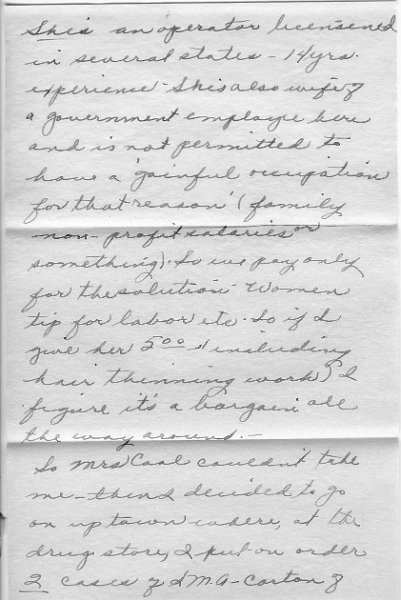 She is an operator licensened
in several states - 14 yrs.
experience - She is also wife of
a government employee here
and is not permitted to
have a 'gainful occupation'
for that reason (family
non-profit salaries or
something). So we pay only
for the solution - Women
tip for labor etc. So if I
give her 5.00 (including
hair thinning work) I
figure it's a bargain all
the way around. -
So Mrs Coal couldn't take
me - then I decided to go
on up town where, at the
drug store, I put on order
2 cases of SMA - Carton of